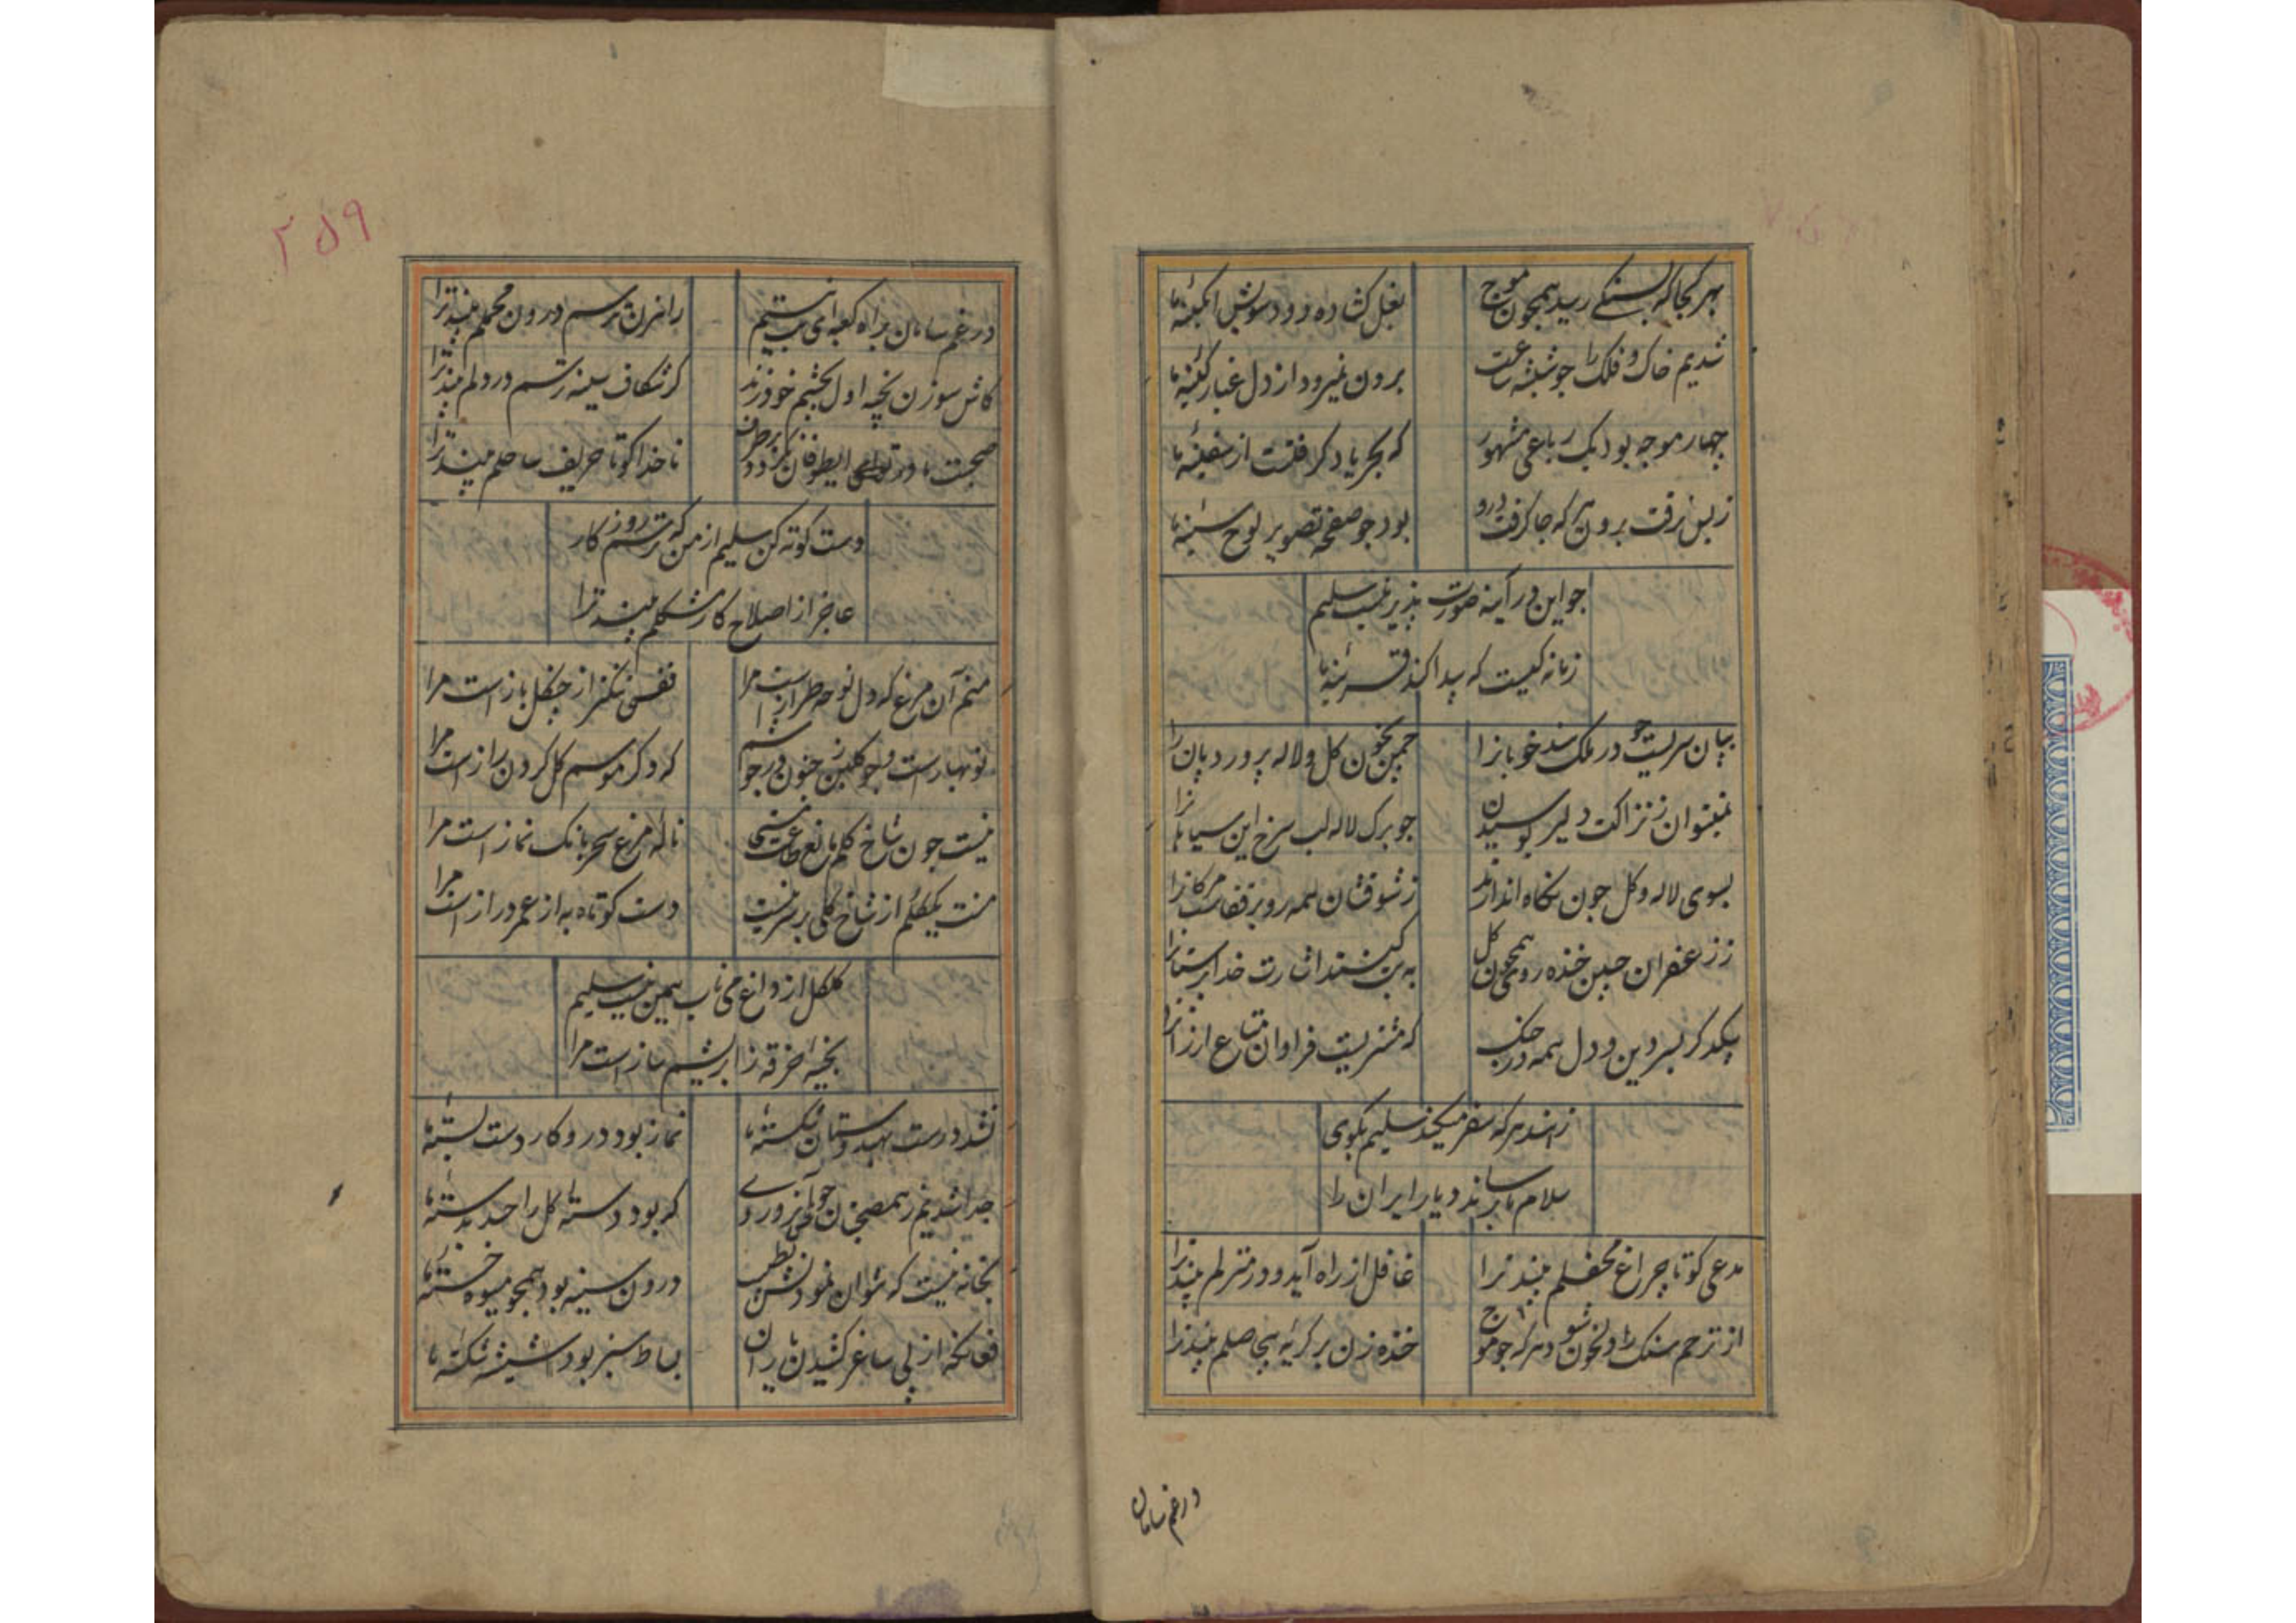 بهر کجا که شکستی رسید همچون موج
بغل کشاده رود سوش آبکینهٔ ما
شدیم خاک و فلک را چو شیشهٔ ساعت
برون نمیرود از دل غبار کینهٔ ما
چهار موجه بود یک رباعی مشهور
که بحر یاد کرافتست از سفینهٔ ما
ز بس نرفت برون هر که جا کرفت درو
بود چو صفحهٔ تصویر لوح سینهٔ ما
جو این در آینه صورت پذیر نیست سلیم
زمانه کیست که پیدا کند قرینهٔ ما
در ملک هند خوبانرا
چمن بخون کل و لاله پرورد پان را
نمیتوان ز نزاکت دلیر بوسیدن
جو برک لاله لب سرخ این سیاهانرا
بسوی لاله و کل جون نکاه اندازند
ز شوقشان همه رو بر قفاست مرکانرا
ز زعفران جبین خنده روی همچون کل
به بت کنند اشارت خدا پرستانرا
بیکدکر بسر دین و دل همه در جنک
که مشتریست فراوان متاع ارزانرا
ز هند هر که سفر میکند سلیم بکوی
سلام ما برساند دیار ایران را
مدعی کو تا چراغ محفلم بیند ترا
غافل از راه آید و در منزلم بیند ترا
از ترحم سنک را دل خون شود هر که چو موج
خنده زن بر کریهٔ بیحاصلم بیند ترا
در غم سامان
۲۵۹
در غم سامان براه کعبه ای بت نیستم
راهزن ترسم درون محملم بیند ترا
کاش سوزن بخیه اول بچشم خود زند
کز شکاف سینه ترسم در دلم بیند ترا
صحبت ما و تو ای طوفان
ناخدا کو تا حریف ساحلم بیند ترا
دست کوته کن سلیم از من که ترسم روزکار
عاجز از اصلاح کار مشکلم بیند ترا
منم آن مرغ که دل نوحه طرازست مرا
قفسی تنکتر از چنکل بازاست مرا
نوبهارست و چو کلبن ز جنون در جوشم
که دکر موسم کل کردن رازاست مرا
نیست جون شاخ کلم مانع طاعت مستی
نالهٔ مرغ سحر بانک نمازاست مرا
منت یکیکلم از شاخ کلی بر سر نیست
دست کوتاه به از عمر درازاست مرا
کلکل از داغ می ناب همین نیست سلیم
بخیهٔ خرقه ز ابریشم سازاست مرا
نشد درست بهندوستان شکستهٔ ما
نماز بود درو کار دست بستهٔ ما
جدا شدیم ز همصحبتان
که بود دستهٔ کل را حسد بدستهٔ ما
بخانه نیست که نتوان نمودنش بطبیب
درون سینه بود همچو میوه خستهٔ ما
فغانکه از پی ساغر کشیدن یاران
بساط سبز بود شیشهٔ شکستهٔ ما